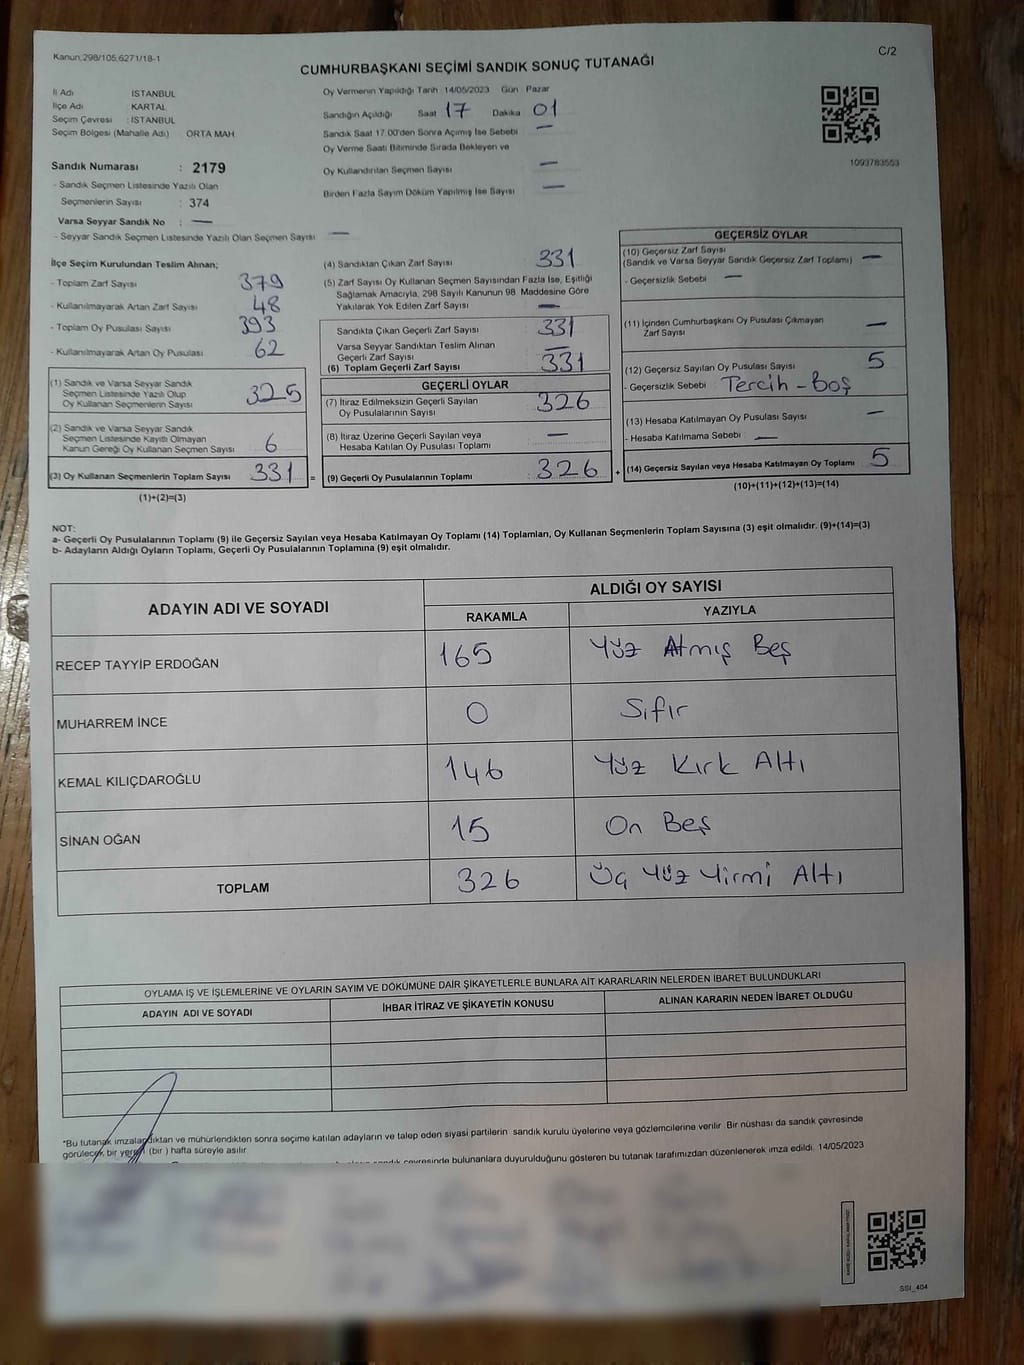 Kanun;298/105,6271/18-1
C/2
CUMHURBAŞKANI SEÇİMİ SANDIK SONUÇ TUTANAĞI
İl Adı İSTANBUL
İlçe Adı KARTAL
Seçim Çevresi : İSTANBUL
Seçim Bölgesi (Mahalle Adı) ORTA MAH
Sandık Numarası : 2179
- Sandık Seçmen Listesinde Yazılı Olan
Seçmenlerin Sayısı : 374
Varsa Seyyar Sandık No : —
- Seyyar Sandık Seçmen Listesinde Yazılı Olan Seçmen Sayısı : —
Oy Vermenin Yapıldığı Tarih : 14/05/2023 Gün Pazar
Sandığın Açıldığı Saat 17 Dakika 01
Sandık Saat 17.00'den Sonra Açımış İse Sebebi —
Oy Verme Saati Bitiminde Sırada Bekleyen ve
Oy Kullandırılan Seçmen Sayısı —
Birden Fazla Sayım Döküm Yapılmış İse Sayısı —
1093783553
İlçe Seçim Kurulundan Teslim Alınan;
- Toplam Zarf Sayısı 379
- Kullanılmayarak Artan Zarf Sayısı 48
- Toplam Oy Pusulası Sayısı 393
- Kullanılmayarak Artan Oy Pusulası 62
(1) Sandık ve Varsa Seyyar Sandık
Seçmen Listesinde Yazılı Olup
Oy Kullanan Seçmenlerin Sayısı 325
(2) Sandık ve Varsa Seyyar Sandık
Seçmen Listesinde Kayıtlı Olmayan
Kanun Gereği Oy Kullanan Seçmen Sayısı 6
(3) Oy Kullanan Seçmenlerin Toplam Sayısı 331 =
(1)+(2)=(3)
(4) Sandıktan Çıkan Zarf Sayısı 331
(5) Zarf Sayısı Oy Kullanan Seçmen Sayısından Fazla İse, Eşitliği
Sağlamak Amacıyla, 298 Sayılı Kanunun 98. Maddesine Göre
Yakılarak Yok Edilen Zarf Sayısı —
Sandıkta Çıkan Geçerli Zarf Sayısı 331
Varsa Seyyar Sandıktan Teslim Alınan
Geçerli Zarf Sayısı —
(6) Toplam Geçerli Zarf Sayısı 331
GEÇERLİ OYLAR
(7) İtiraz Edilmeksizin Geçerli Sayılan
Oy Pusulalarının Sayısı : 326
(8) İtiraz Üzerine Geçerli Sayılan veya
Hesaba Katılan Oy Pusulası Toplamı : —
(9) Geçerli Oy Pusulalarının Toplamı : 326 +
GEÇERSİZ OYLAR
(10) Geçersiz Zarf Sayısı
(Sandık ve Varsa Seyyar Sandık Geçersiz Zarf Toplamı) —
- Geçersizlik Sebebi : —
(11) İçinden Cumhurbaşkanı Oy Pusulası Çıkmayan
Zarf Sayısı —
(12) Geçersiz Sayılan Oy Pusulası Sayısı 5
- Geçersizlik Sebebi : Tercih - Boş
(13) Hesaba Katılmayan Oy Pusulası Sayısı —
- Hesaba Katılmama Sebebi : —
(14) Geçersiz Sayılan veya Hesaba Katılmayan Oy Toplamı 5
(10)+(11)+(12)+(13)=(14)
NOT:
a- Geçerli Oy Pusulalarının Toplamı (9) ile Geçersiz Sayılan veya Hesaba Katılmayan Oy Toplamı (14) Toplamları, Oy Kullanan Seçmenlerin Toplam Sayısına (3) eşit olmalıdır. (9)+(14)=(3)
b- Adayların Aldığı Oyların Toplamı, Geçerli Oy Pusulalarının Toplamına (9) eşit olmalıdır.
ADAYIN ADI VE SOYADI ALDIĞI OY SAYISI
RAKAMLA YAZIYLA
RECEP TAYYİP ERDOĞAN 165 Yüz Atmış Beş
MUHARREM İNCE 0 Sıfır
KEMAL KILIÇDAROĞLU 146 Yüz Kırk Altı
SİNAN OĞAN 15 On Beş
TOPLAM 326 Üç Yüz Yirmi Altı
OYLAMA İŞ VE İŞLEMLERİNE VE OYLARIN SAYIM VE DÖKÜMÜNE DAİR ŞİKAYETLERLE BUNLARA AİT KARARLARIN NELERDEN İBARET BULUNDUKLARI
ADAYIN ADI VE SOYADI İHBAR İTİRAZ VE ŞİKAYETİN KONUSU ALINAN KARARIN NEDEN İBARET OLDUĞU
*Bu tutanak imzalandıktan ve mühürlendikten sonra seçime katılan adayların ve talep eden siyasi partilerin sandık kurulu üyelerine veya gözlemcilerine verilir. Bir nüshası da sandık çevresinde
görülecek bir yere (bir) hafta süreyle asılır.
sandık çevresinde bulunanlara duyurulduğunu gösteren bu tutanak tarafımızdan düzenlenerek imza edildi. 14/05/2023
SSI_404